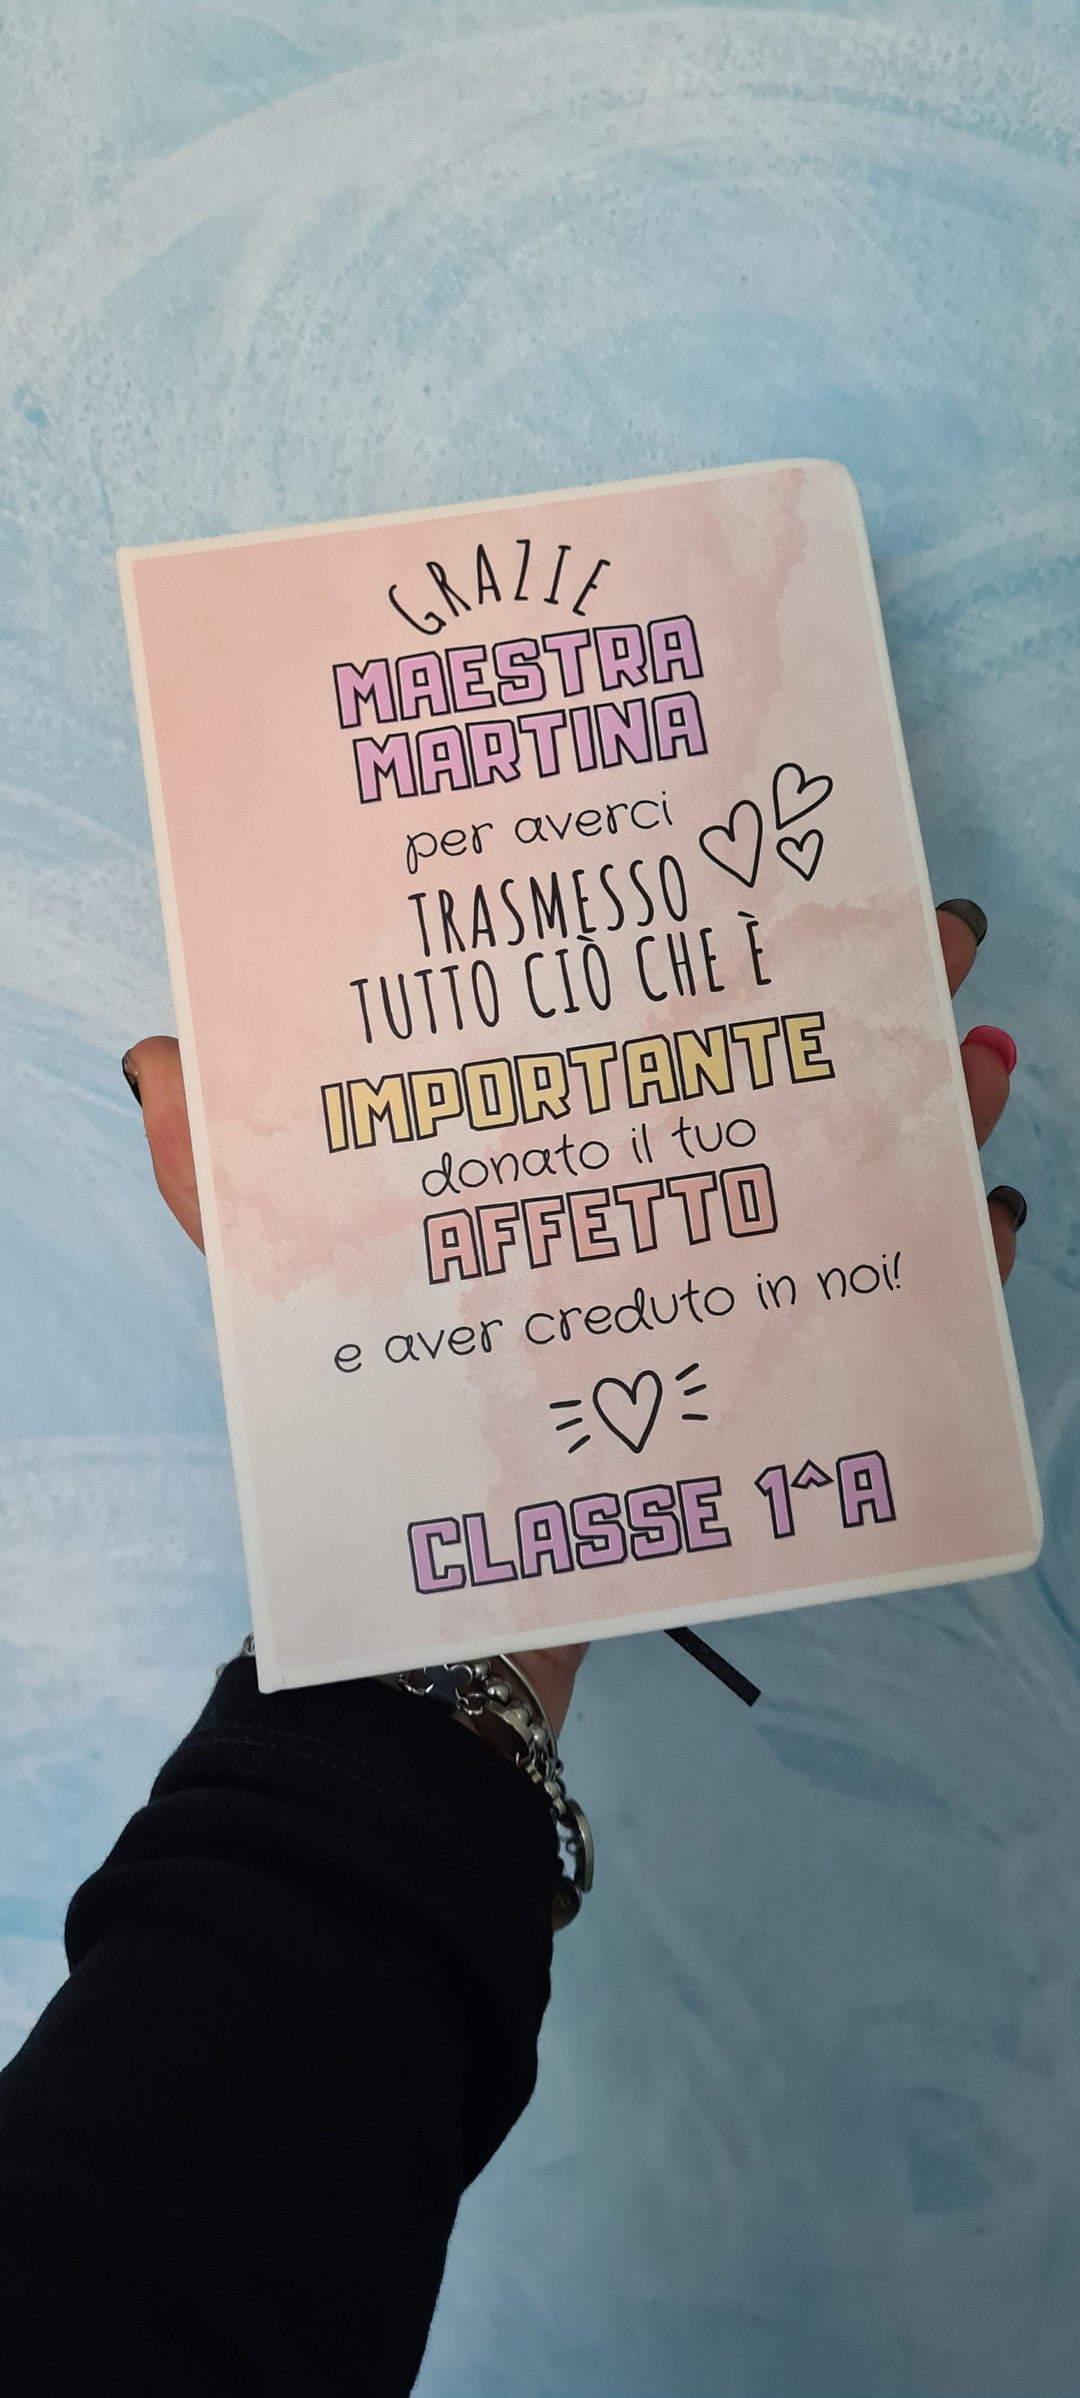 GRAZIE
MAESTRA
MARTINA
per averci
TRASMESSO
TUTTO CIÒ CHE È
IMPORTANTE
donato il tuo
AFFETTO
e aver creduto in noi!
CLASSE 1^A